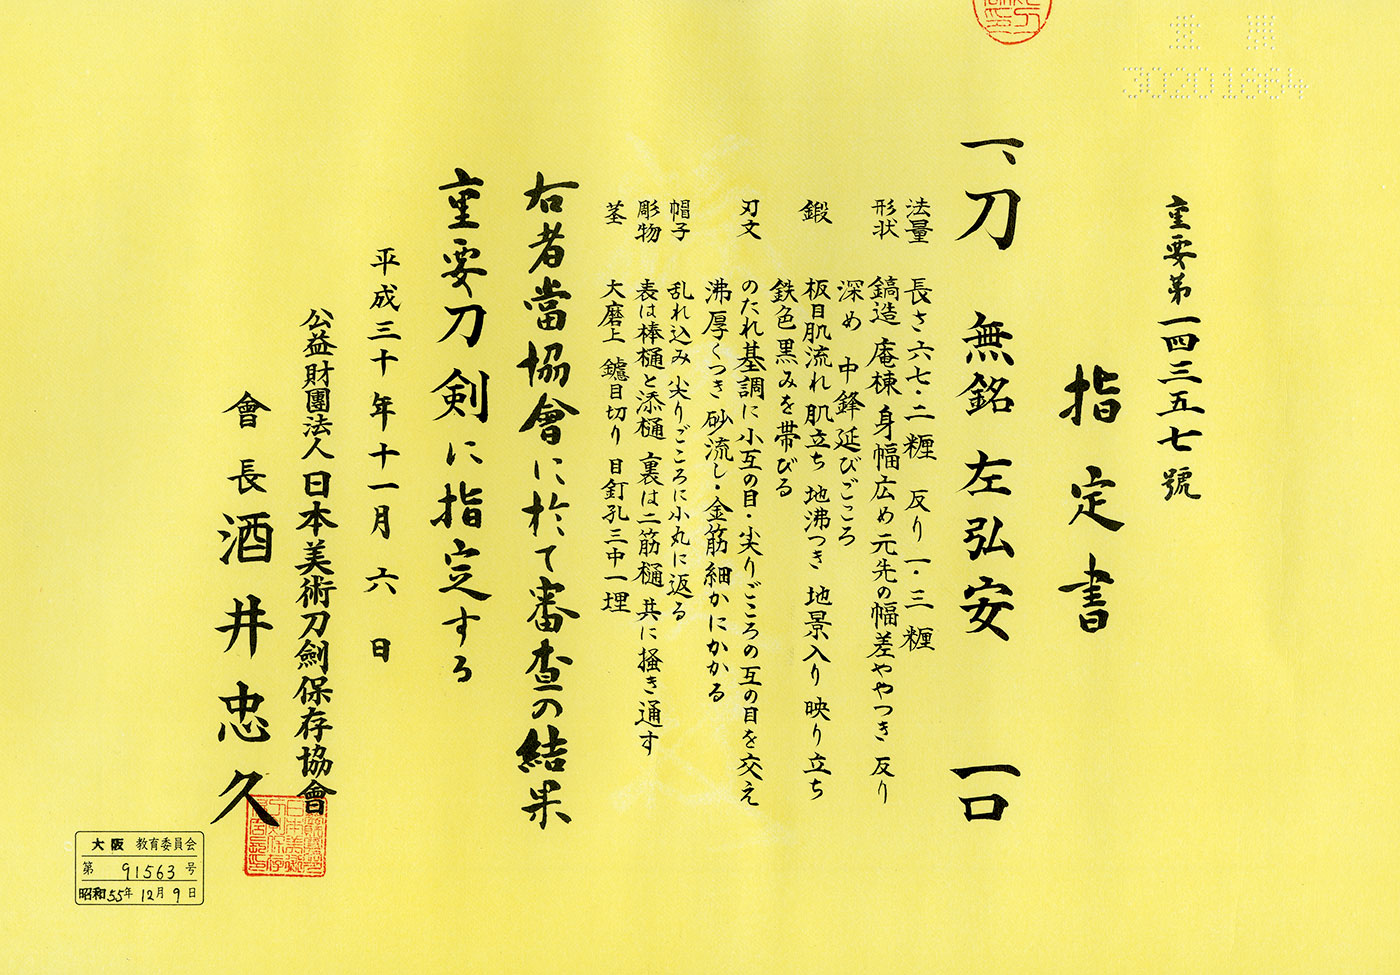 重要
30201864
重要第一四三五七號
指定書
一、刀 無銘 左弘安 一口
法量 長さ六七・二糎 反り一・三糎
形状 鎬造 庵棟 身幅広め 元先の幅差ややつき 反り
深め 中鋒延びごころ
鍛 板目肌流れ 肌立ち 地沸つき 地景入り 映り立ち
鉄色黒みを帯びる
刃文 のたれ基調に小互の目・尖りごころの互の目を交え
沸厚くつき 砂流し・金筋細かにかかる
帽子 乱れ込み 尖りごころに小丸に返る
彫物 表は棒樋と添樋 裏は二筋樋 共に掻き通す
茎 大磨上 鑢目切り 目釘孔三中一埋
右者當協會に於て審査の結果
重要刀剣に指定する
平成三十年十一月六日
公益財團法人日本美術刀劍保存協會
會長 酒井忠久
大阪 教育委員会
第 91563 号
昭和55年12月9日